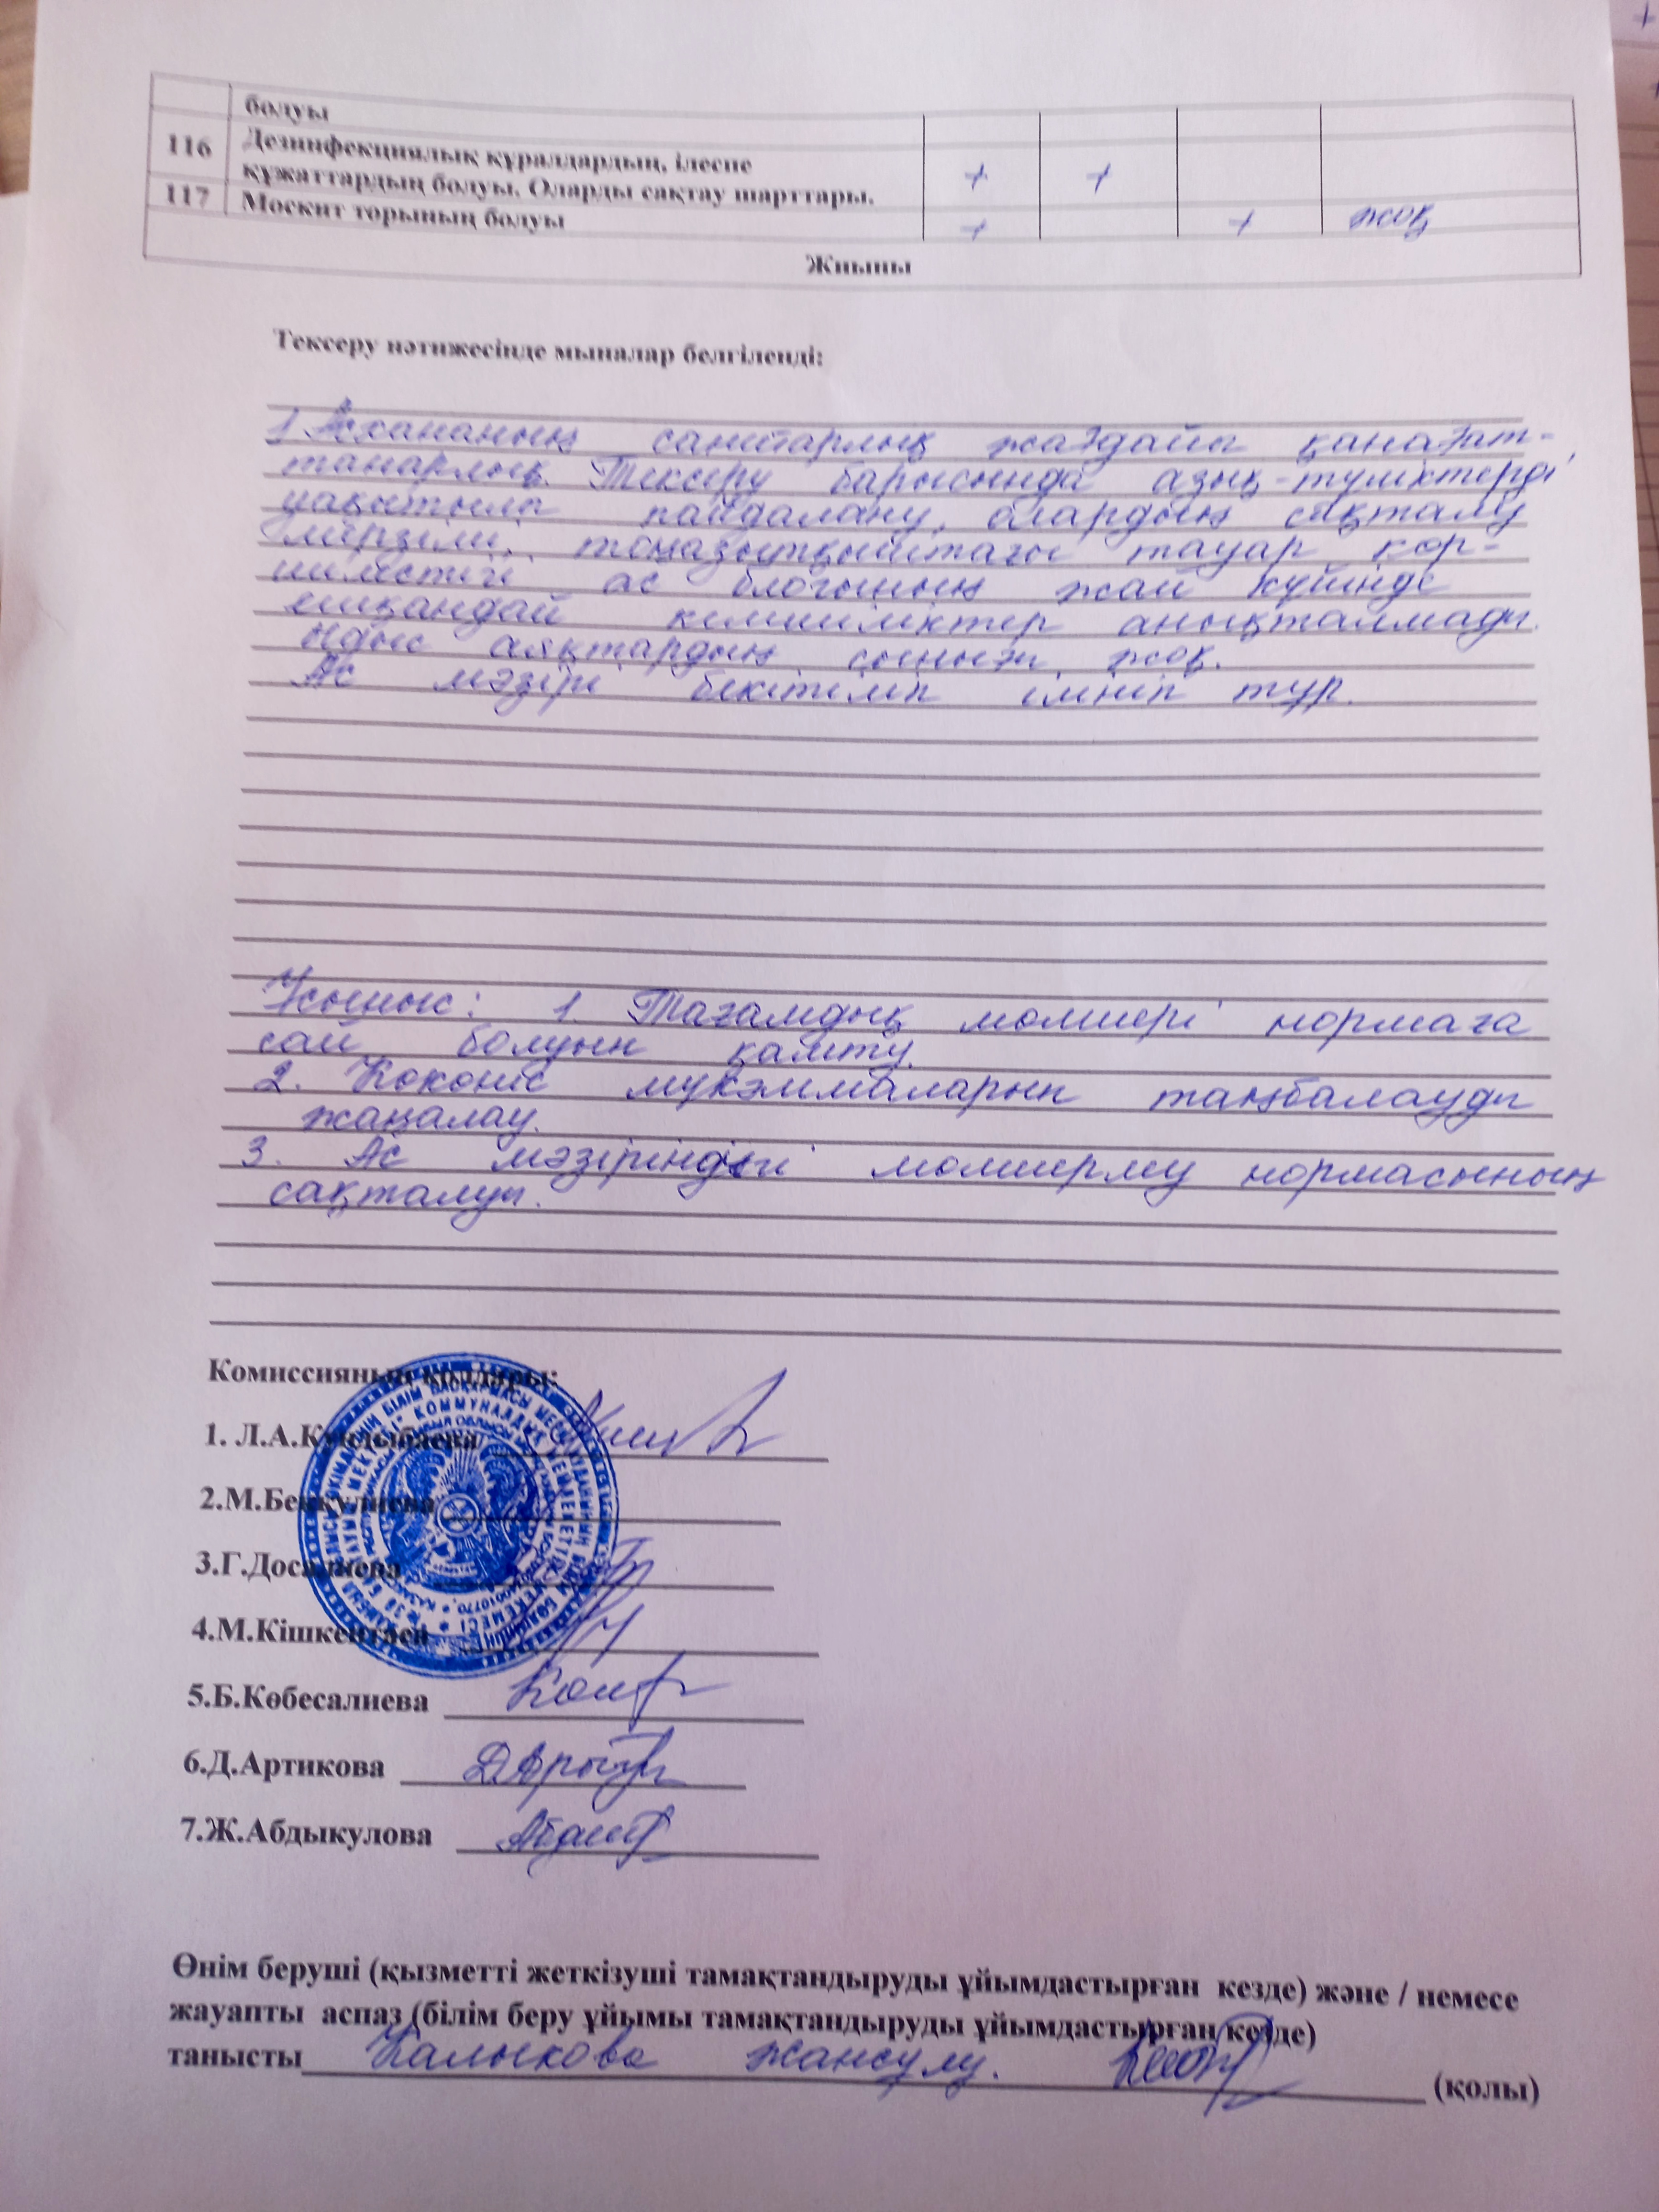 болуы
116 Дезинфекциялық құралдардың, ілеспе
құжаттардың болуы. Оларды сақтау шарттары. + +
117 Москит торының болуы + + жоқ
Жиыны
Тексеру нәтижесінде мыналар белгіленді:
1 Асхананың санитарлық жағдайы қанағат-
танарлық. Тексеру барысында азық-түліктерді
уақытылы пайдалану, олардың сақталу
мерзімі, тоңазытқыштағы тауар көр-
шілестігі ас блогының жай күйінде
ешқандай кемшіліктер анықталмады.
Ыдыс аяқтардың сынығы жоқ.
Ас мәзірі бекітіліп ілініп тұр.
Ұсыныс: 1. Тағамдық мөлшері нормаға
сай болуын қамту.
2. Көкөніс мүкәммаларын таңбалауды
жаңалау.
3. Ас мәзіріндегі мөлшерлеу нормасының
сақталуы.
Комиссияның қолдары:
1. Л.А.
2.М.
3.Г.Досалиева
4.М.
5.Б.Көбесалиева
6.Д.Артикова
7.Ж.Абдыкулова
Өнім беруші (қызметті жеткізуші тамақтандыруды ұйымдастырған кезде) және / немесе
жауапты аспаз (білім беру ұйымы тамақтандыруды ұйымдастырған кезде)
танысты Калыкова Жансулу. (қолы)